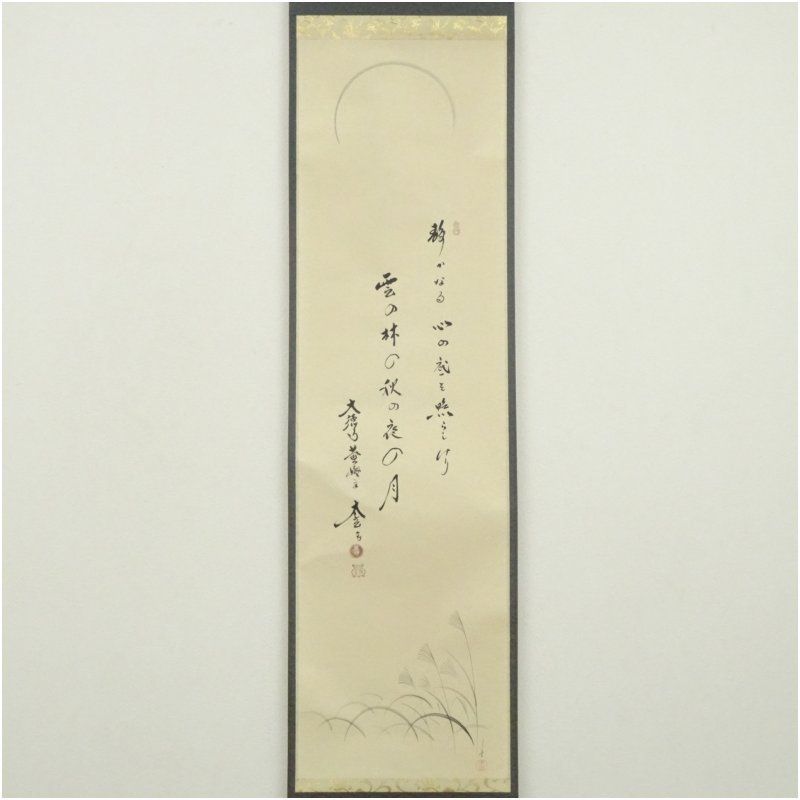 静かなる心の底を照らしけ
雲の林の秋の夜の月
大徳